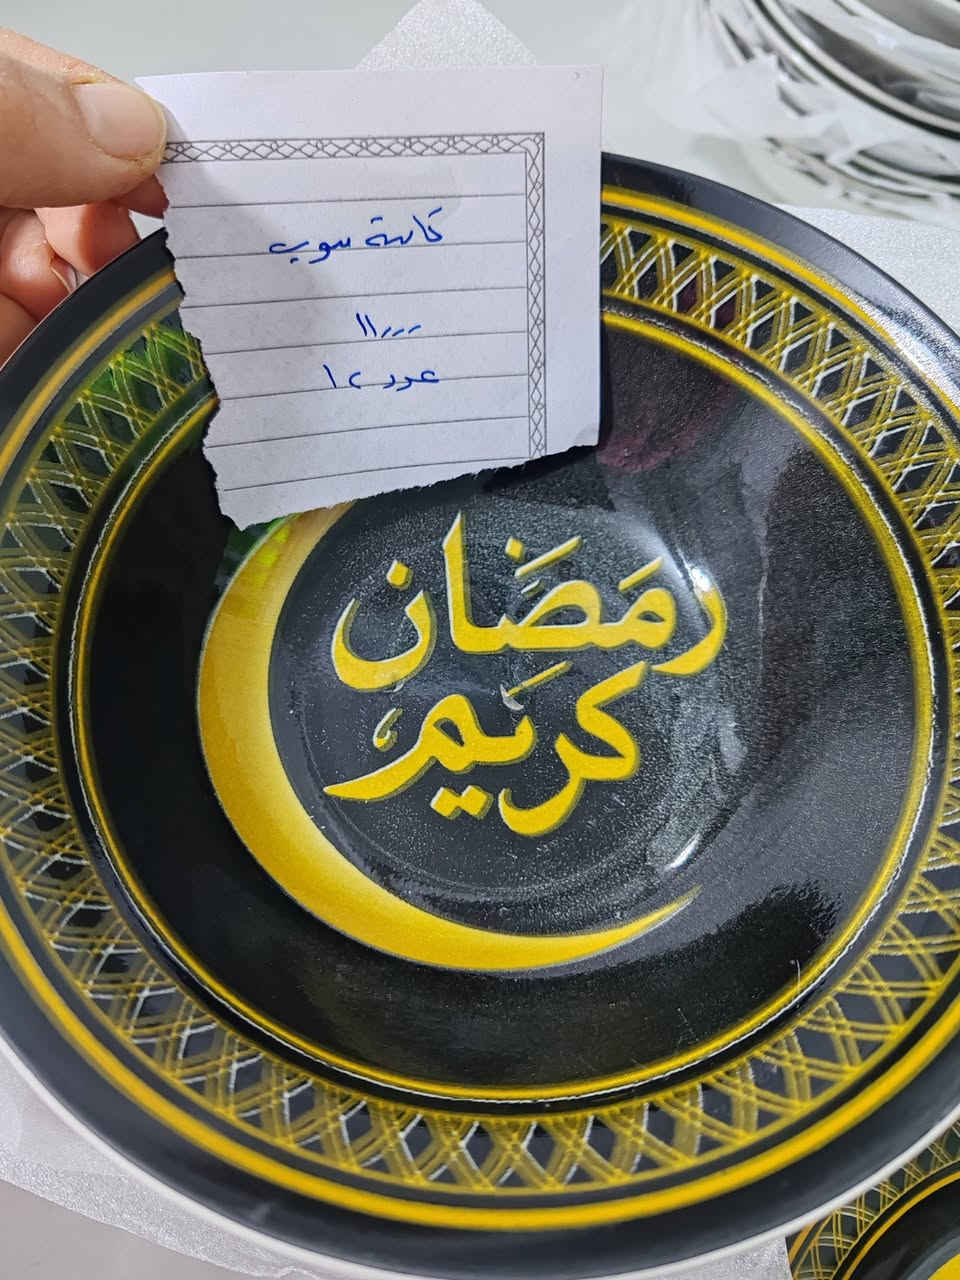 كاسة سوب
١١٠٠٠
عدد ١٢
رمضان
كريم